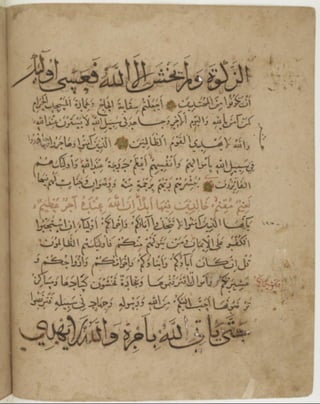 الزكوة ولم يخش الا الله فعسى اولئك
ان يكونوا من المهتدين اجعلتم سقاية الحاج وعمارة المسجد الحرام
كمن آمن بالله واليوم الآخر وجاهد في سبيل الله لا يستوون عند الله
والله لا يهدي القوم الظالمين الذين آمنوا وهاجروا وجاهدوا
في سبيل الله باموالهم وانفسهم اعظم درجة عند الله واولئك هم
الفائزون يبشرهم ربهم برحمة منه ورضوان وجنات لهم فيها
نعيم مقيم خالدين فيها ابدا ان الله عنده اجر عظيم
يا ايها الذين آمنوا لا تتخذوا آباءكم واخوانكم اولياء ان استحبوا
الكفر على الايمان ومن يتولهم منكم فاولئك هم الظالمون
قل ان كان آباؤكم وابناؤكم واخوانكم وازواجكم و
عشيرتكم واموال اقترفتموها وتجارة تخشون كسادها ومساكن
ترضونها احب اليكم من الله ورسوله وجهاد في سبيله فتربصوا
حتى يأتي الله بامره والله لا يهدي